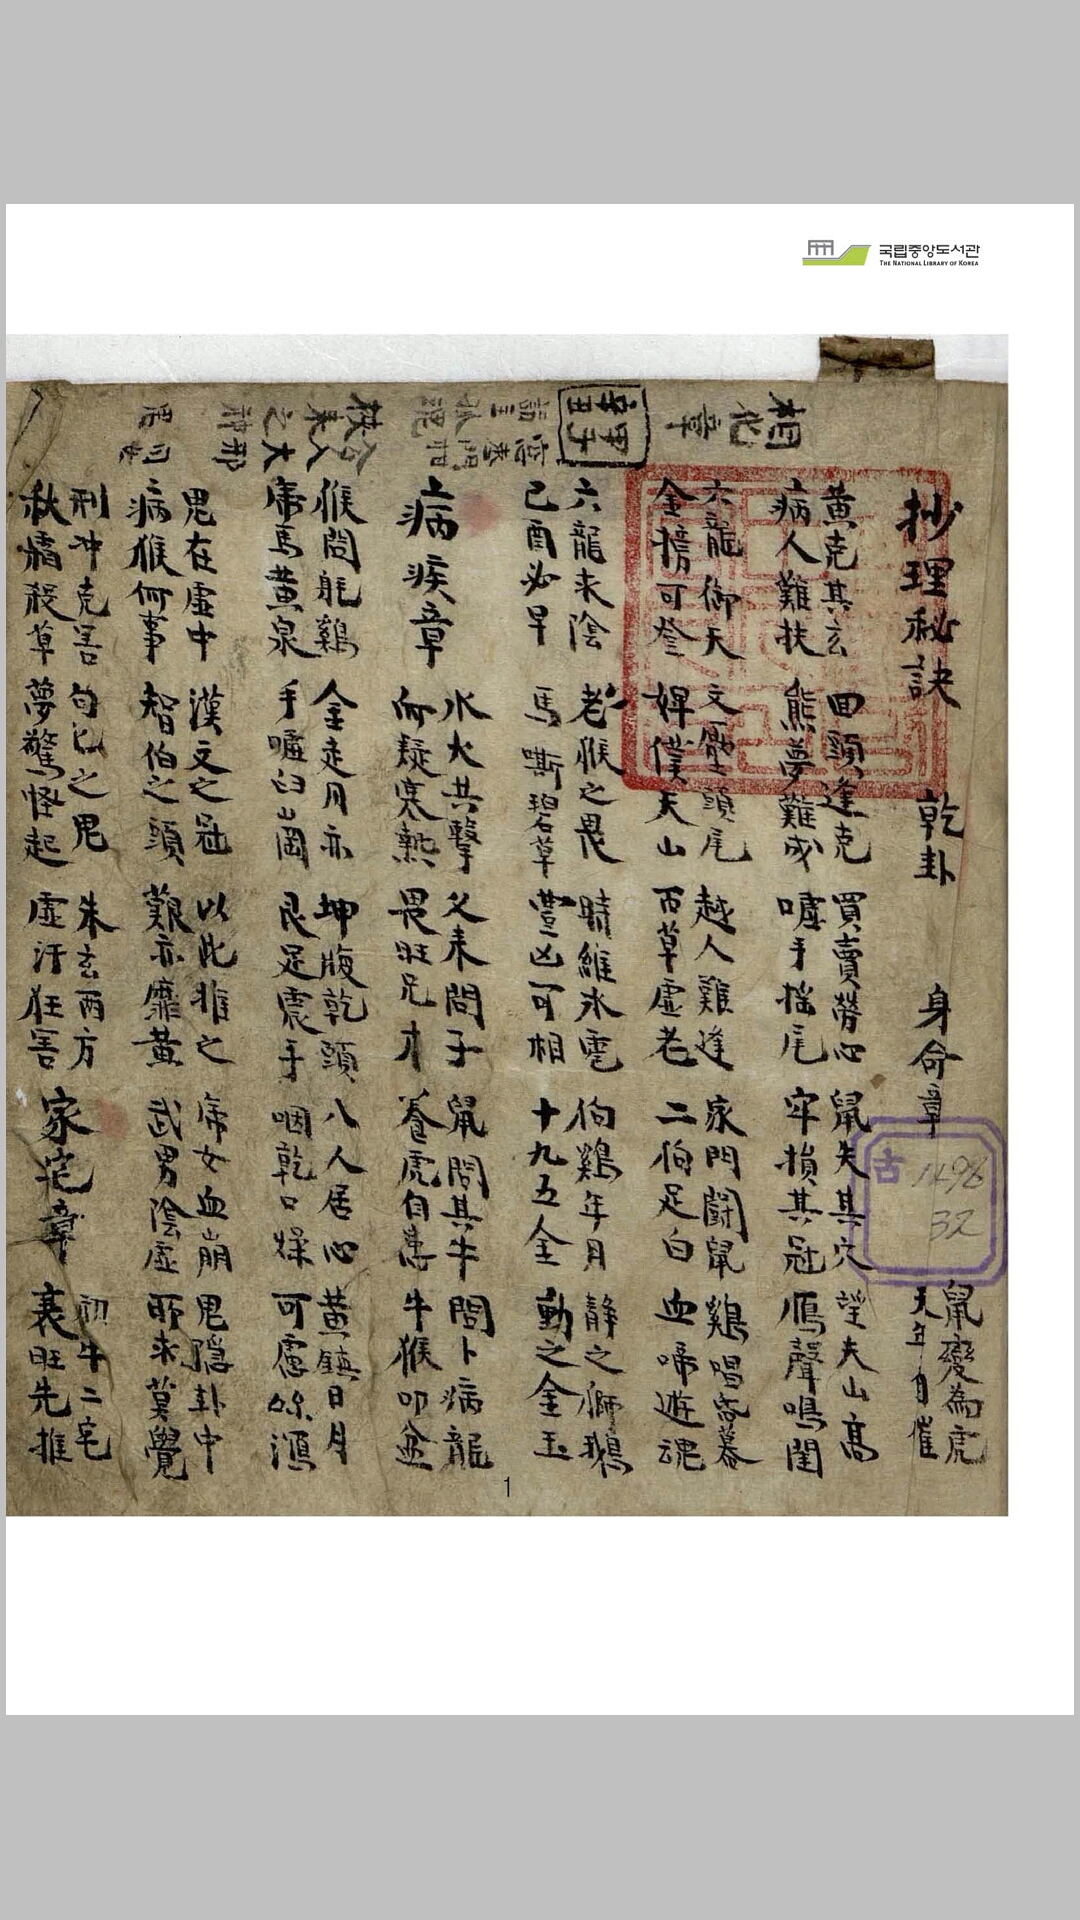 국립중앙도서관
THE NATIONAL LIBRARY OF KOREA
抄理秘訣 乾卦 身命章 鼠變為虎
天年自催
黃克其玄 回頭逢克 買賣勞心 鼠失其穴 望夫山高
病人難扶 熊夢難成 嘘手搖尾 牢損其冠 鴈聲鳴閨
六龍御天 文壓頭尾 越人難逢 家門鬪鼠 鷄唱昏暮
金榜可登 婢僕天山 百草虛老 二伯足白 血啼遊魂
六龍來陰 老猴之畏 時維氷雹 伯鷄年月 靜之獅鵝
己酉必早 馬嘶碧草 豊凶可相 十九五金 動之金玉
病疾章 水火共擊 父来問子 鼠問其牛 問卜病龍
而疑寒熱 畏旺兄才 養虎自患 牛猴叩盆
猴問蛇鷄 金走月亦 坤腹乾頭 八人居心 黃鎮日月
虎馬黃泉 手嘘臼山岡 艮足震手 咽乾口燥 可慮
鬼在虛中 漢文之冠 以此推之 虎女血崩 鬼隱卦中
病猴何事 智伯之頭 艱亦靡黃 武男陰虛 耶求莫覺
刑冲克害 句巳之鬼 朱玄兩方 家宅章 初牛二宅
秋霜殺草 夢驚怪起 虛汗狂害 衰旺先推
相化章
古 1496
32
1